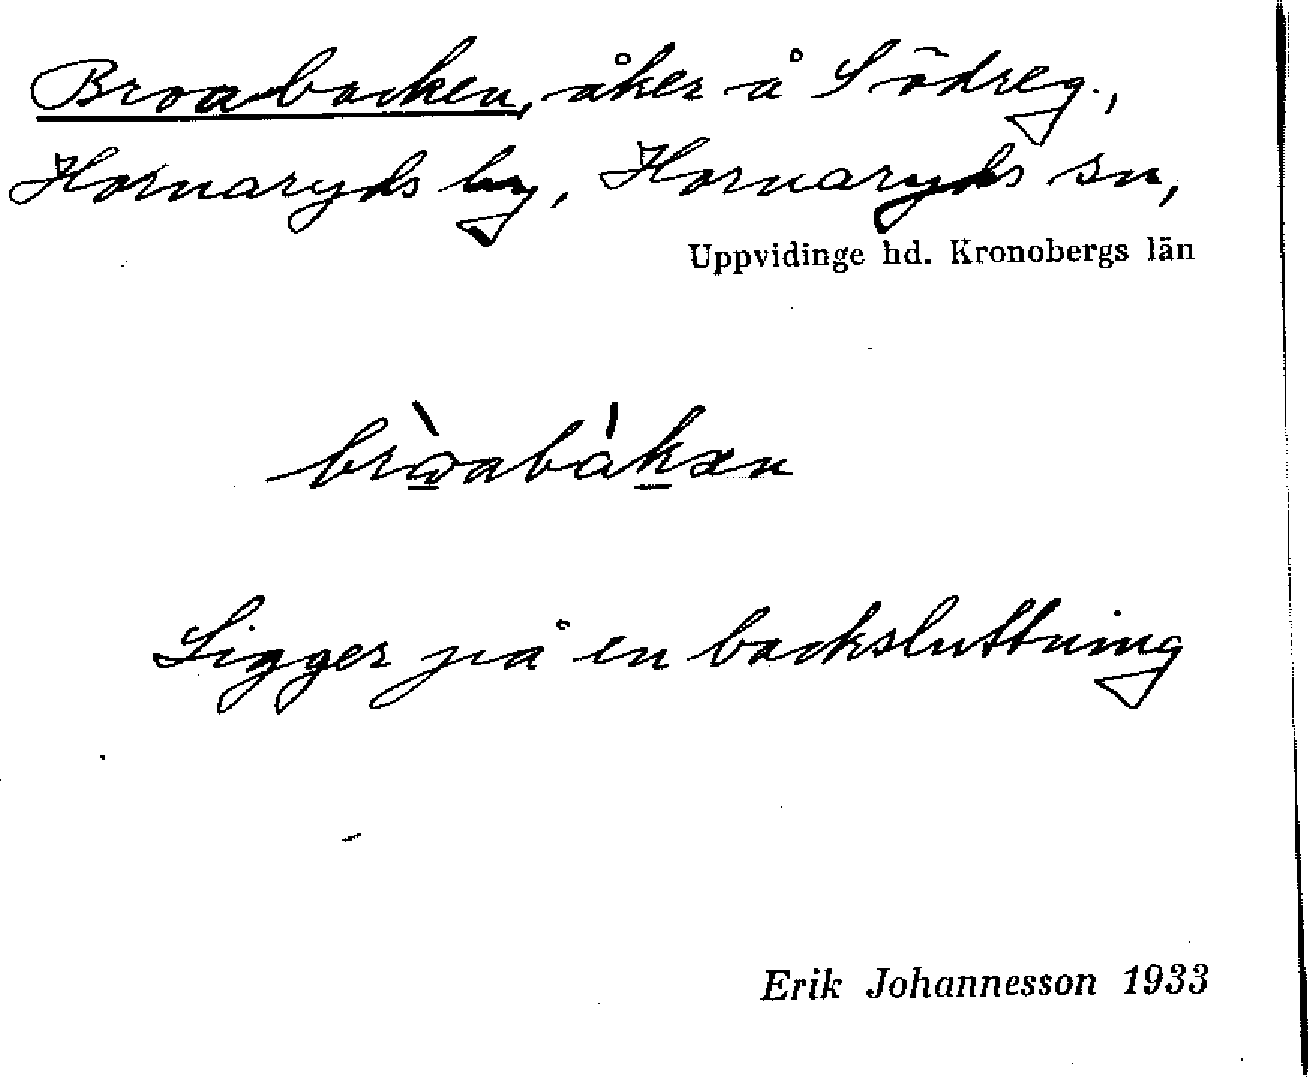 Broabacken, åker å Södreg.,
Hornaryds by, Hornaryds sn,
Uppvidinge hd. Kronobergs län
Ligger på en backsluttning
Erik Johannesson 1933